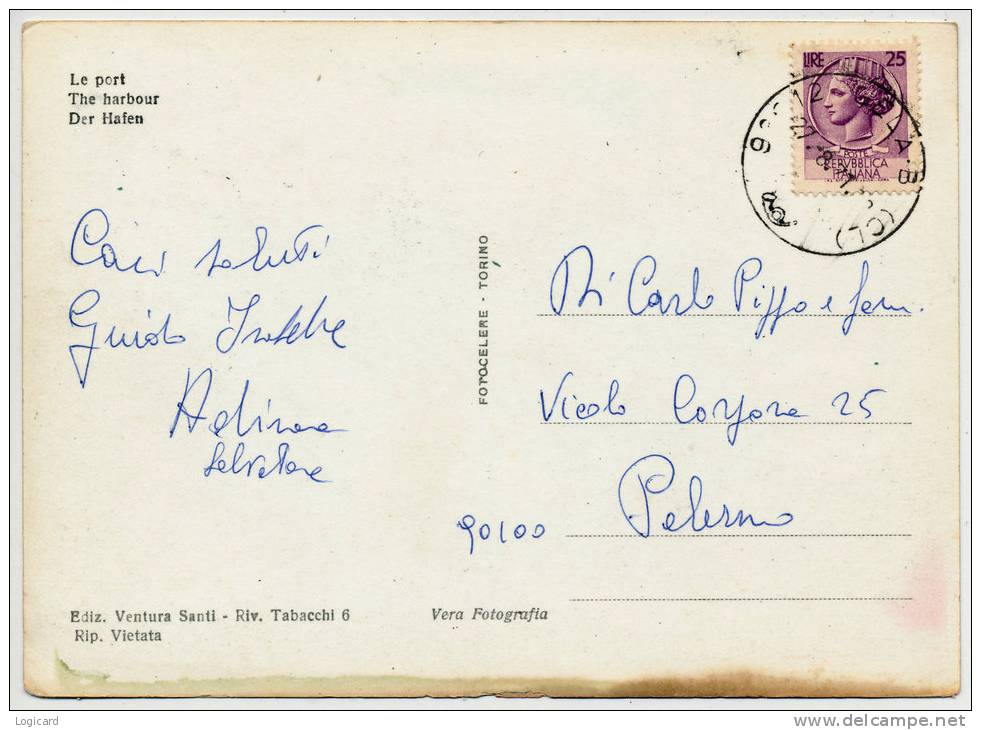 Le port
The harbour
Der Hafen
LIRE 25
POSTE
REPVBBLICA
ITALIANA
(CL)
Cari saluti
Guido
Adina
Salvatore
FOTOCELERE - TORINO
Di Carlo Pippo e fam.
Vicolo 25
Palermo
90100
Ediz. Ventura Santi - Riv. Tabacchi 6
Rip. Vietata
Vera Fotografia
Logicard
www.delcampe.net